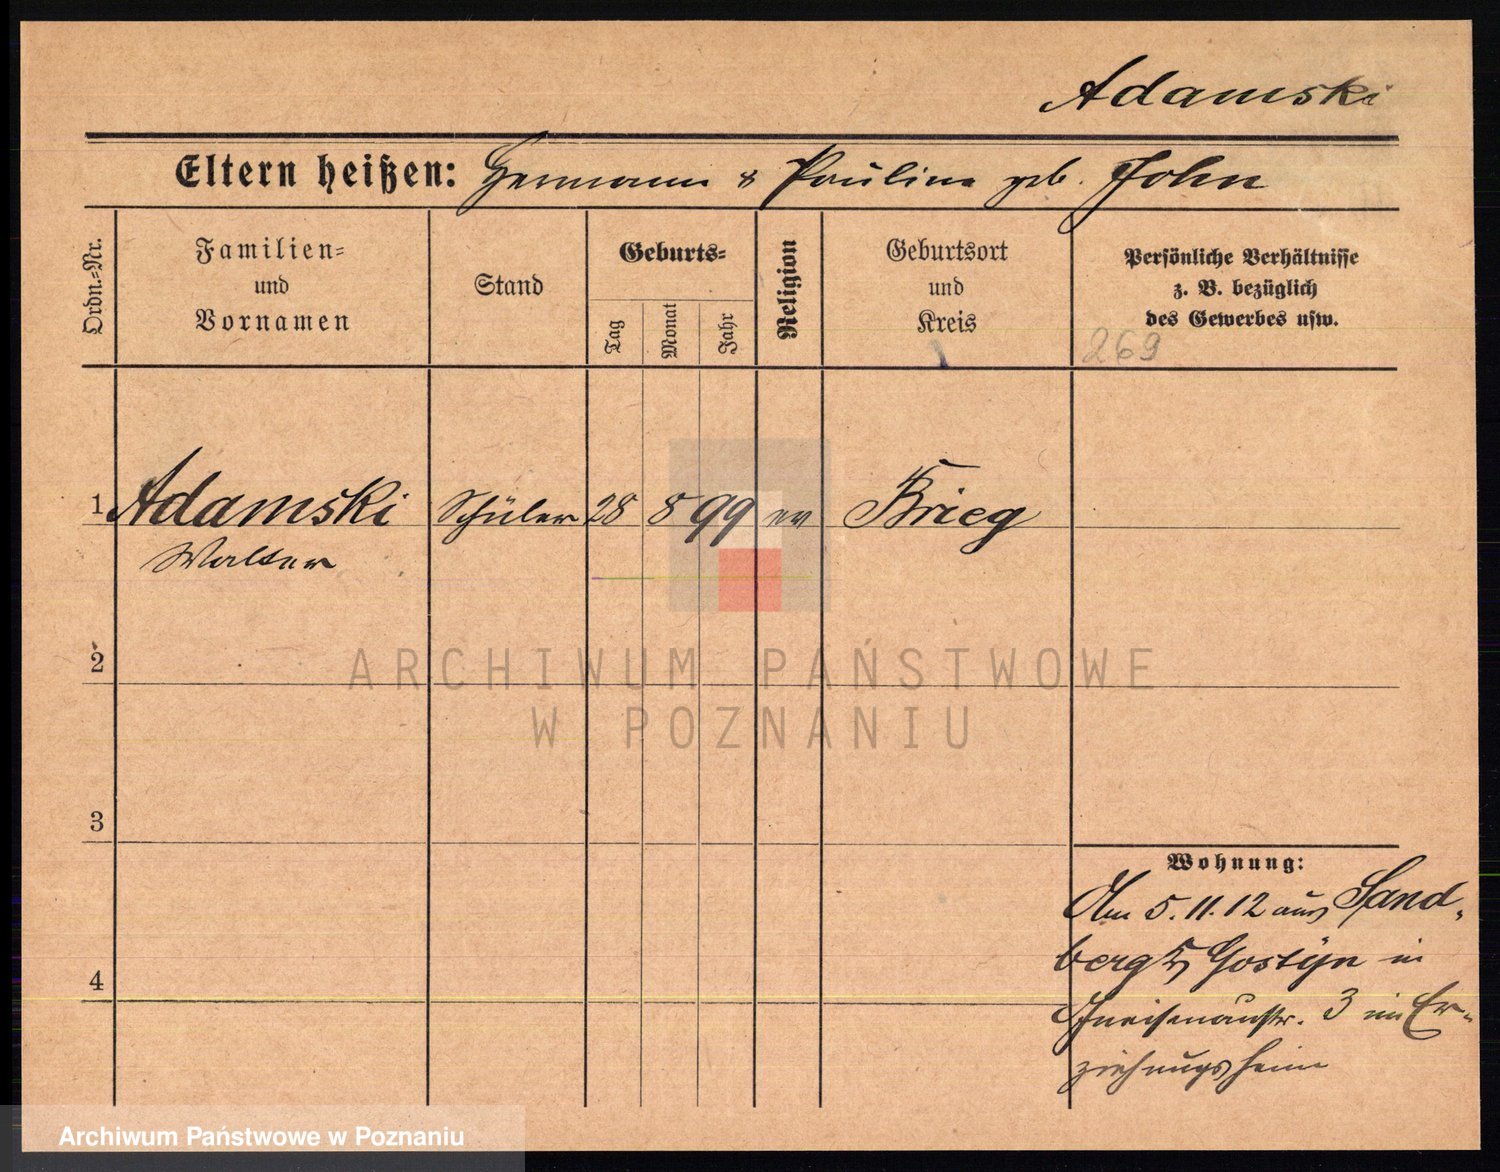 Adamski
Eltern heißen: Hermann & Pauline geb. John
Ordn.=Nr.
Familien=
und
Vornamen
Stand
Geburts=
Tag
Monat
Jahr
Religion
Geburtsort
und
Kreis
Persönliche Verhältnisse
z. B. bezüglich
des Gewerbes usw.
269
1 Adamski Schüler 28 8 99 ev Brieg
Walter
2
ARCHIWUM PAŃSTWOWE
W POZNANIU
3
Wohnung:
Am 5.11.12 aus Sand-
berg Kr Gostyn in
Gneisenaustr. 3 im Er-
ziehungsheim
4
Archiwum Państwowe w Poznaniu